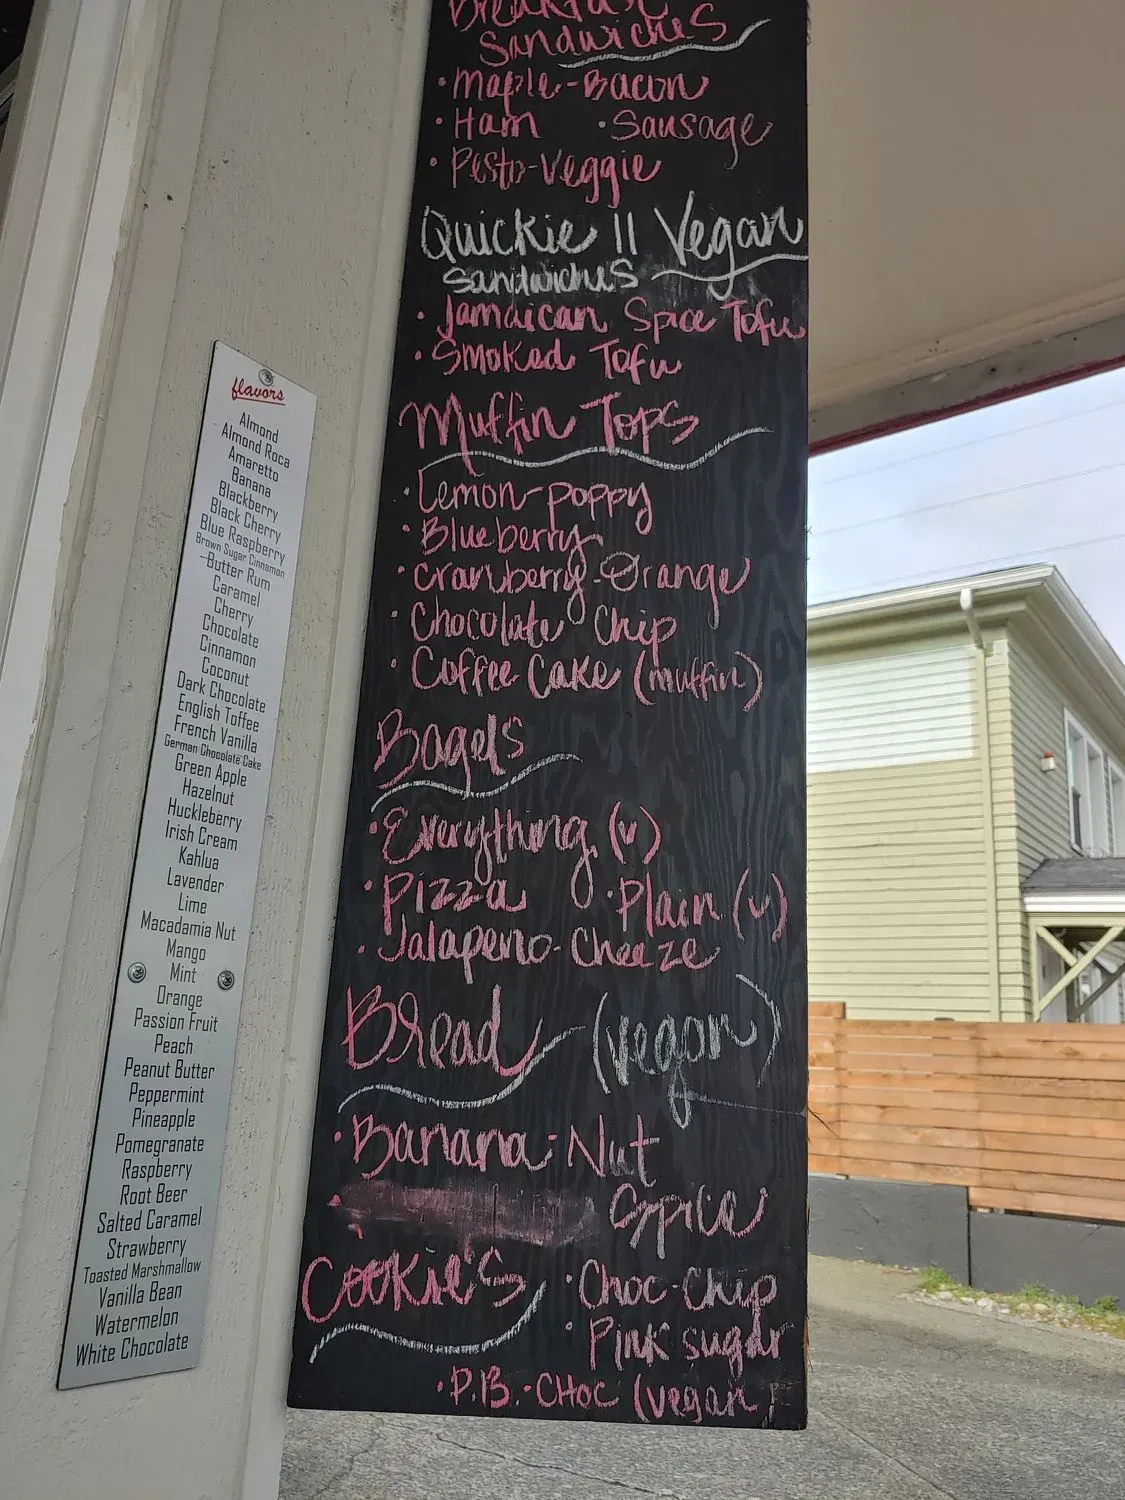 flavors
Almond
Almond Roca
Amaretto
Banana
Blackberry
Black Cherry
Blue Raspberry
Brown Sugar Cinnamon
Butter Rum
Caramel
Cherry
Chocolate
Cinnamon
Coconut
Dark Chocolate
English Toffee
French Vanilla
German Chocolate Cake
Green Apple
Hazelnut
Huckleberry
Irish Cream
Kahlua
Lavender
Lime
Macadamia Nut
Mango
Mint
Orange
Passion Fruit
Peach
Peanut Butter
Peppermint
Pineapple
Pomegranate
Raspberry
Root Beer
Salted Caramel
Strawberry
Toasted Marshmallow
Vanilla Bean
Watermelon
White Chocolate
Breakfast
Sandwiches
• Maple-Bacon
• Ham • Sausage
• Pesto-Veggie
Quickie II Vegan
Sandwiches
• Jamaican Spice Tofu
• Smoked Tofu
Muffin Tops
• Lemon-poppy
• Blueberry
• Cranberry-Orange
• Chocolate Chip
• Coffee Cake (muffin)
Bagels
• Everything (v)
• Pizza • Plain (v)
• Jalapeno-Cheeze
Bread (vegan)
• Banana-Nut
• Spice
Cookie's • Choc-Chip
• Pink sugar
• P.B.-CHOC (vegan